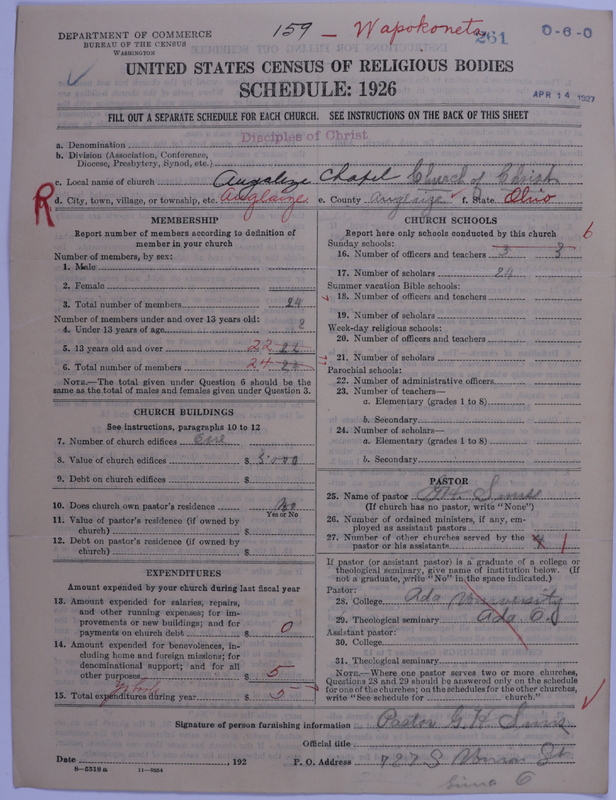 159 - Wapokoneta
261
0-6-0
DEPARTMENT OF COMMERCE
BUREAU OF THE CENSUS
WASHINGTON
UNITED STATES CENSUS OF RELIGIOUS BODIES
SCHEDULE: 1926
APR 14 1927
FILL OUT A SEPARATE SCHEDULE FOR EACH CHURCH. SEE INSTRUCTIONS ON THE BACK OF THIS SHEET
Disciples of Christ
a. Denomination
b. Division (Association, Conference,
Diocese, Presbytery, Synod, etc.)
c. Local name of church Auglaize Chapel Church of Christ
R d. City, town, village, or township, etc. Auglaize e. County Auglaize f. State Ohio
MEMBERSHIP
Report number of members according to definition of
member in your church
Number of members, by sex:
1. Male
2. Female
3. Total number of members 24
Number of members under and over 13 years old:
4. Under 13 years of age 2
5. 13 years old and over 22 22
6. Total number of members 24
NOTE.—The total given under Question 6 should be the
same as the total of males and females given under Question 3.
CHURCH BUILDINGS
See instructions, paragraphs 10 to 12
7. Number of church edifices One
8. Value of church edifices $ 3000
9. Debt on church edifices $
10. Does church own pastor's residence? No
Yes or No
11. Value of pastor's residence (if owned by
church) $
12. Debt on pastor's residence (if owned by
church) $
EXPENDITURES
Amount expended by your church during last fiscal year
13. Amount expended for salaries, repairs,
and other running expenses; for im-
provements or new buildings; and for
payments on church debt $ 0
14. Amount expended for benevolences, in-
cluding home and foreign missions; for
denominational support; and for all
other purposes $ 5
15. Total expenditures during year $ 5
CHURCH SCHOOLS
Report here only schools conducted by this church
6
Sunday schools:
16. Number of officers and teachers 3 3
17. Number of scholars 24
Summer vacation Bible schools:
18. Number of officers and teachers
19. Number of scholars
Week-day religious schools:
20. Number of officers and teachers
21. Number of scholars
Parochial schools:
22. Number of administrative officers
23. Number of teachers—
a. Elementary (grades 1 to 8)
b. Secondary
24. Number of scholars—
a. Elementary (grades 1 to 8)
b. Secondary
PASTOR
25. Name of pastor G.H. Sims
(If church has no pastor, write "None")
26. Number of ordained ministers, if any, em-
ployed as assistant pastors
27. Number of other churches served by the
pastor or his assistants 4 1
If pastor (or assistant pastor) is a graduate of a college or
theological seminary, give name of institution below. (If
not a graduate, write "No" in the space indicated.)
Pastor:
28. College Ada University
29. Theological seminary Ada O.
Assistant pastor:
30. College
31. Theological seminary
NOTE.—Where one pastor serves two or more churches,
Questions 28 and 29 should be answered only on the schedule
for one of the churches; on the schedules for the other churches,
write "See schedule for church."
Signature of person furnishing information Pastor G H Sims
Official title
Date , 192 P. O. Address 727 S Union St
8-5518a 11-9554
Lima O